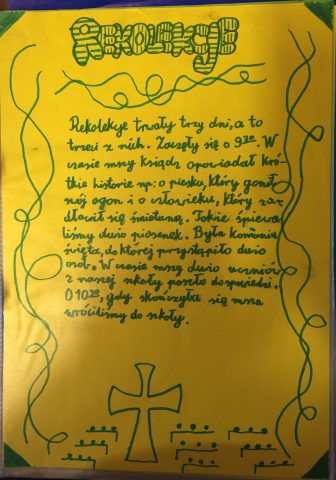 REKOLEKCJE
Rekolekcje trwały trzy dni, a to
trzeci z nich. Zaczęły się o 9³⁰. W
czasie mszy ksiądz opowiadał kró-
tkie historie np.: o piesku, który gonił
swój ogon i o człowieku, który za-
dławił się śmietaną. Także śpiewa-
liśmy dużo piosenek. Była komunia
święta, do której przystąpiło dużo
osób. W czasie mszy dużo uczniów
z naszej szkoły poszło do spowiedzi.
O 10³⁰, gdy skończyła się msza
wróciliśmy do szkoły.